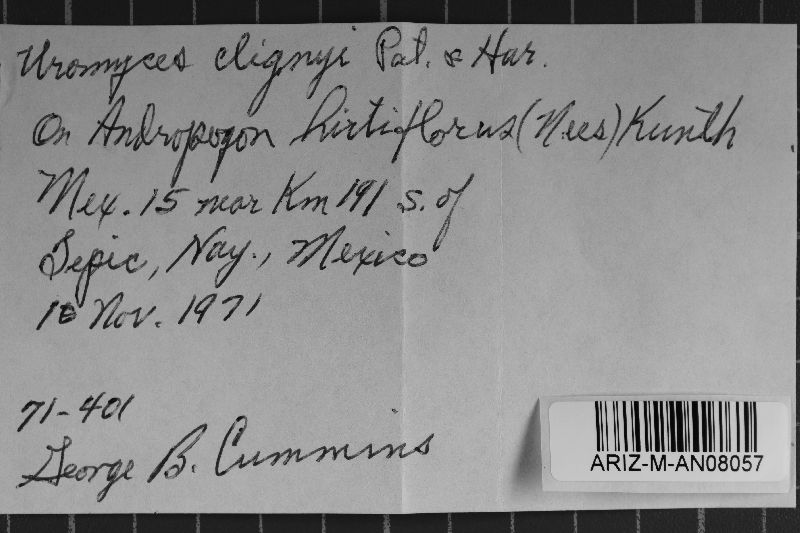 Uromyces clignyi Pat. & Har.
On Andropogon hirtiflorus (Nees) Kunth
Mex. 15 near Km 191 s. of
Tepic, Nay., Mexico
10 Nov. 1971
71-401
George B. Cummins
ARIZ-M-AN08057